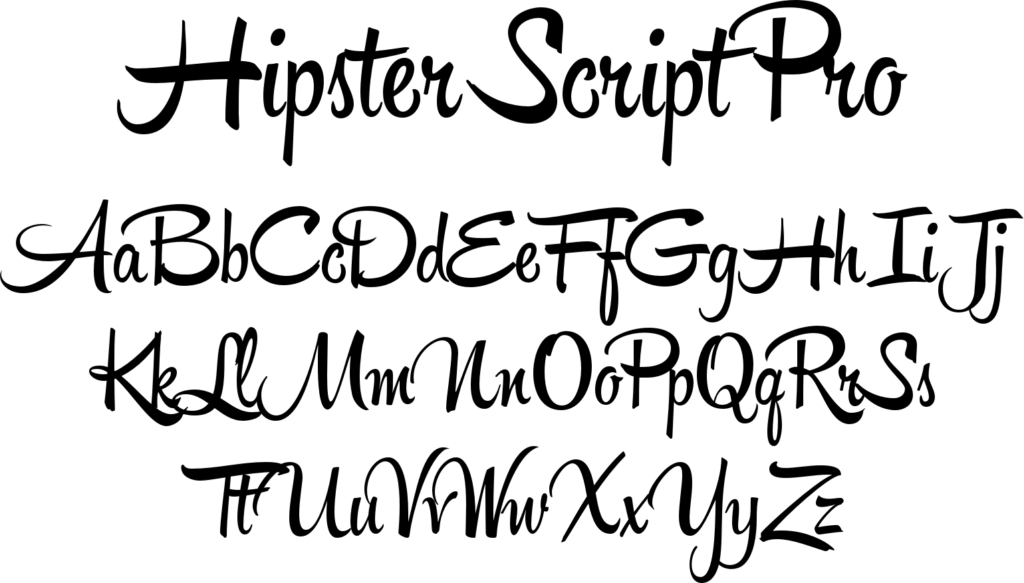 Hipster Script Pro
AaBbCcDdEeFfGgHhIiJj
KkLlMmNnOoPpQqRrSs
TtUuVvWwXxYyZz